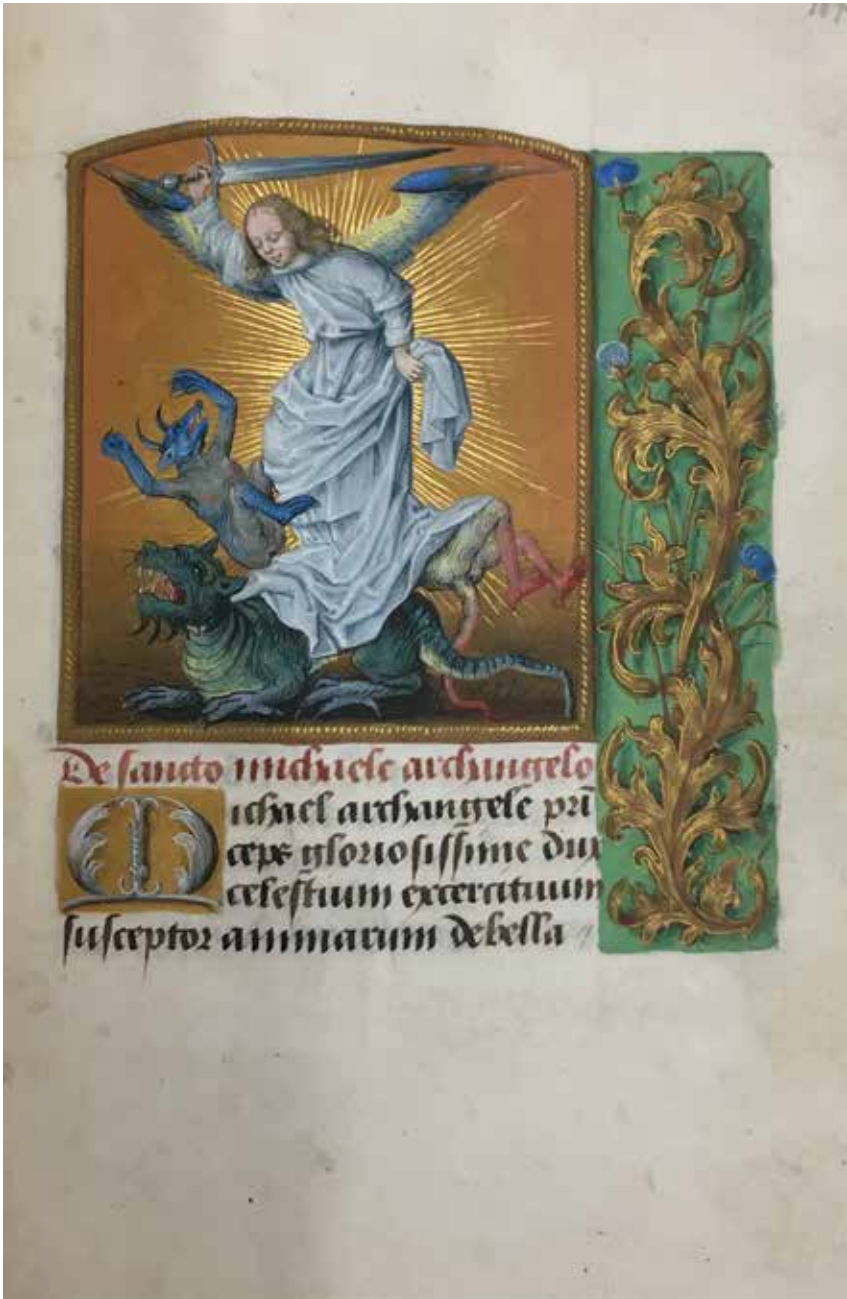 De sancto michaele archangelo
Michael archangele pri̅
ceps gloriosissime dux
celestium excercituum
susceptor animarum debella